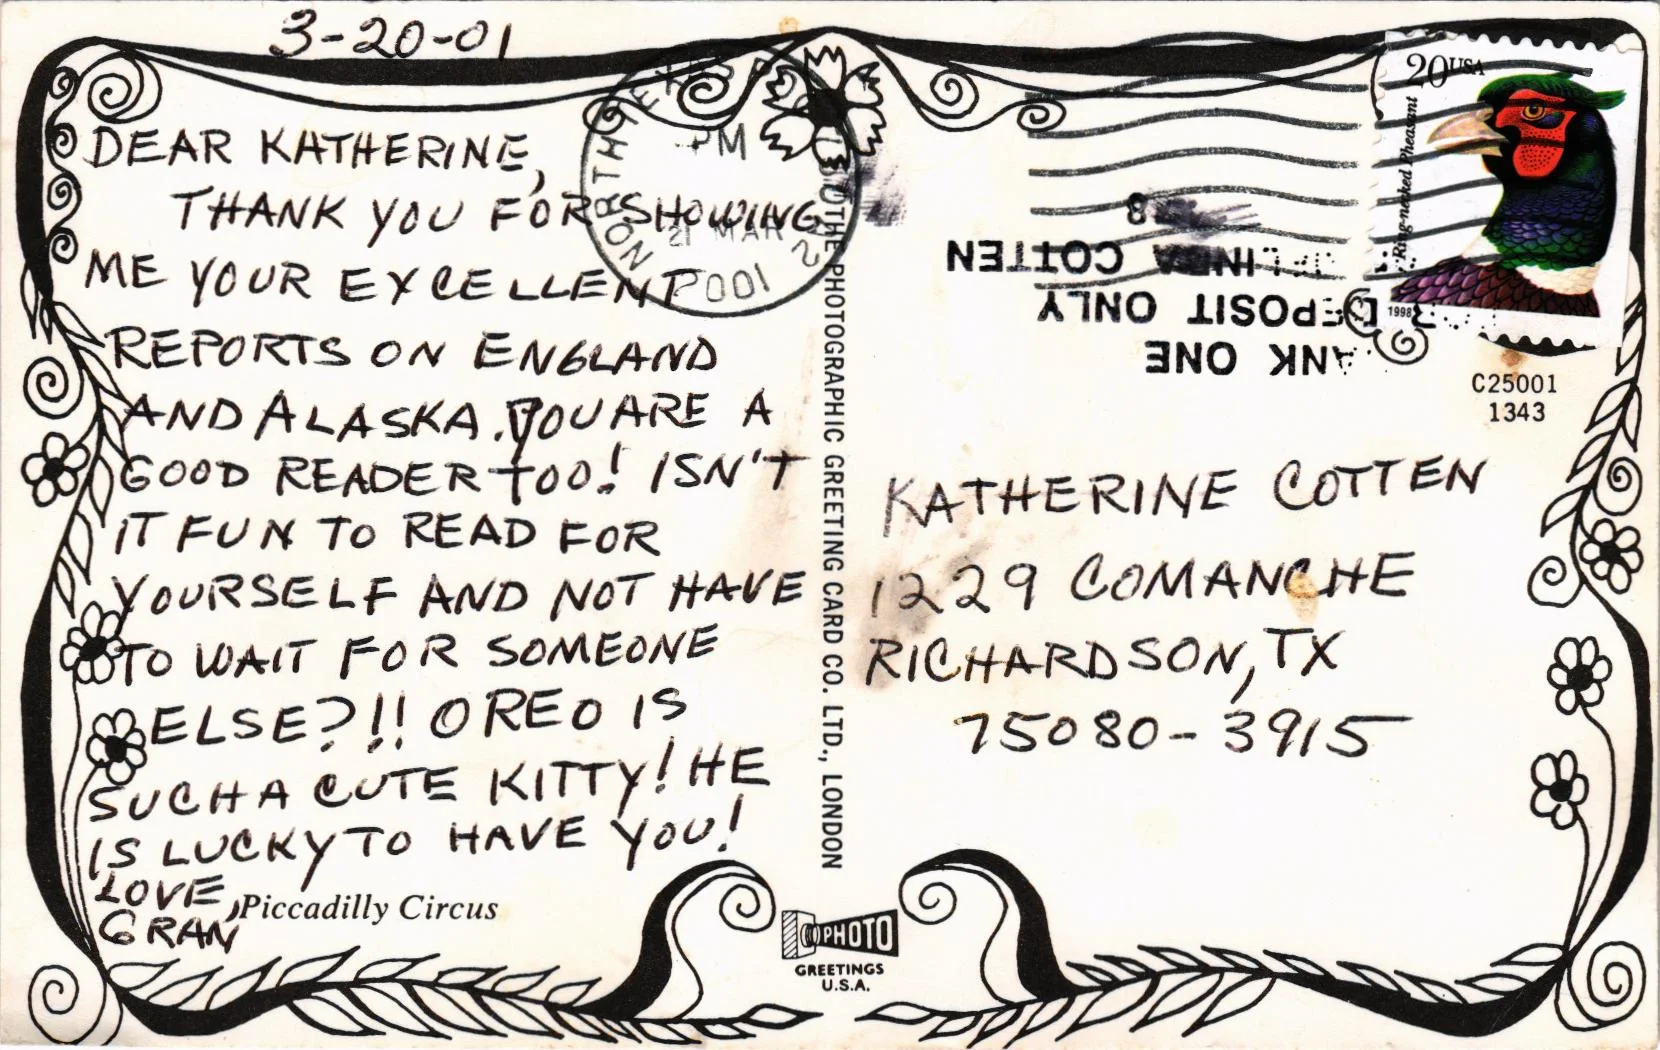 3-20-01
DEAR KATHERINE,
THANK YOU FOR SHOWING
ME YOUR EXCELLENT
REPORTS ON ENGLAND
AND ALASKA. YOU ARE A
GOOD READER TOO! ISN'T
IT FUN TO READ FOR
YOURSELF AND NOT HAVE
TO WAIT FOR SOMEONE
ELSE?!! OREO IS
SUCH A CUTE KITTY! HE
IS LUCKY TO HAVE YOU!
LOVE,
GRAN
Piccadilly Circus
NORTH TEXAS
PM
21 MAR
2001
PHOTOGRAPHIC GREETING CARD CO. LTD., LONDON
PHOTO
GREETINGS
U.S.A.
20USA
Ring-necked Pheasant
1998
ANK ONE
POSIT ONLY
COTTEN
C25001
1343
KATHERINE COTTEN
1229 COMANCHE
RICHARDSON, TX
75080-3915